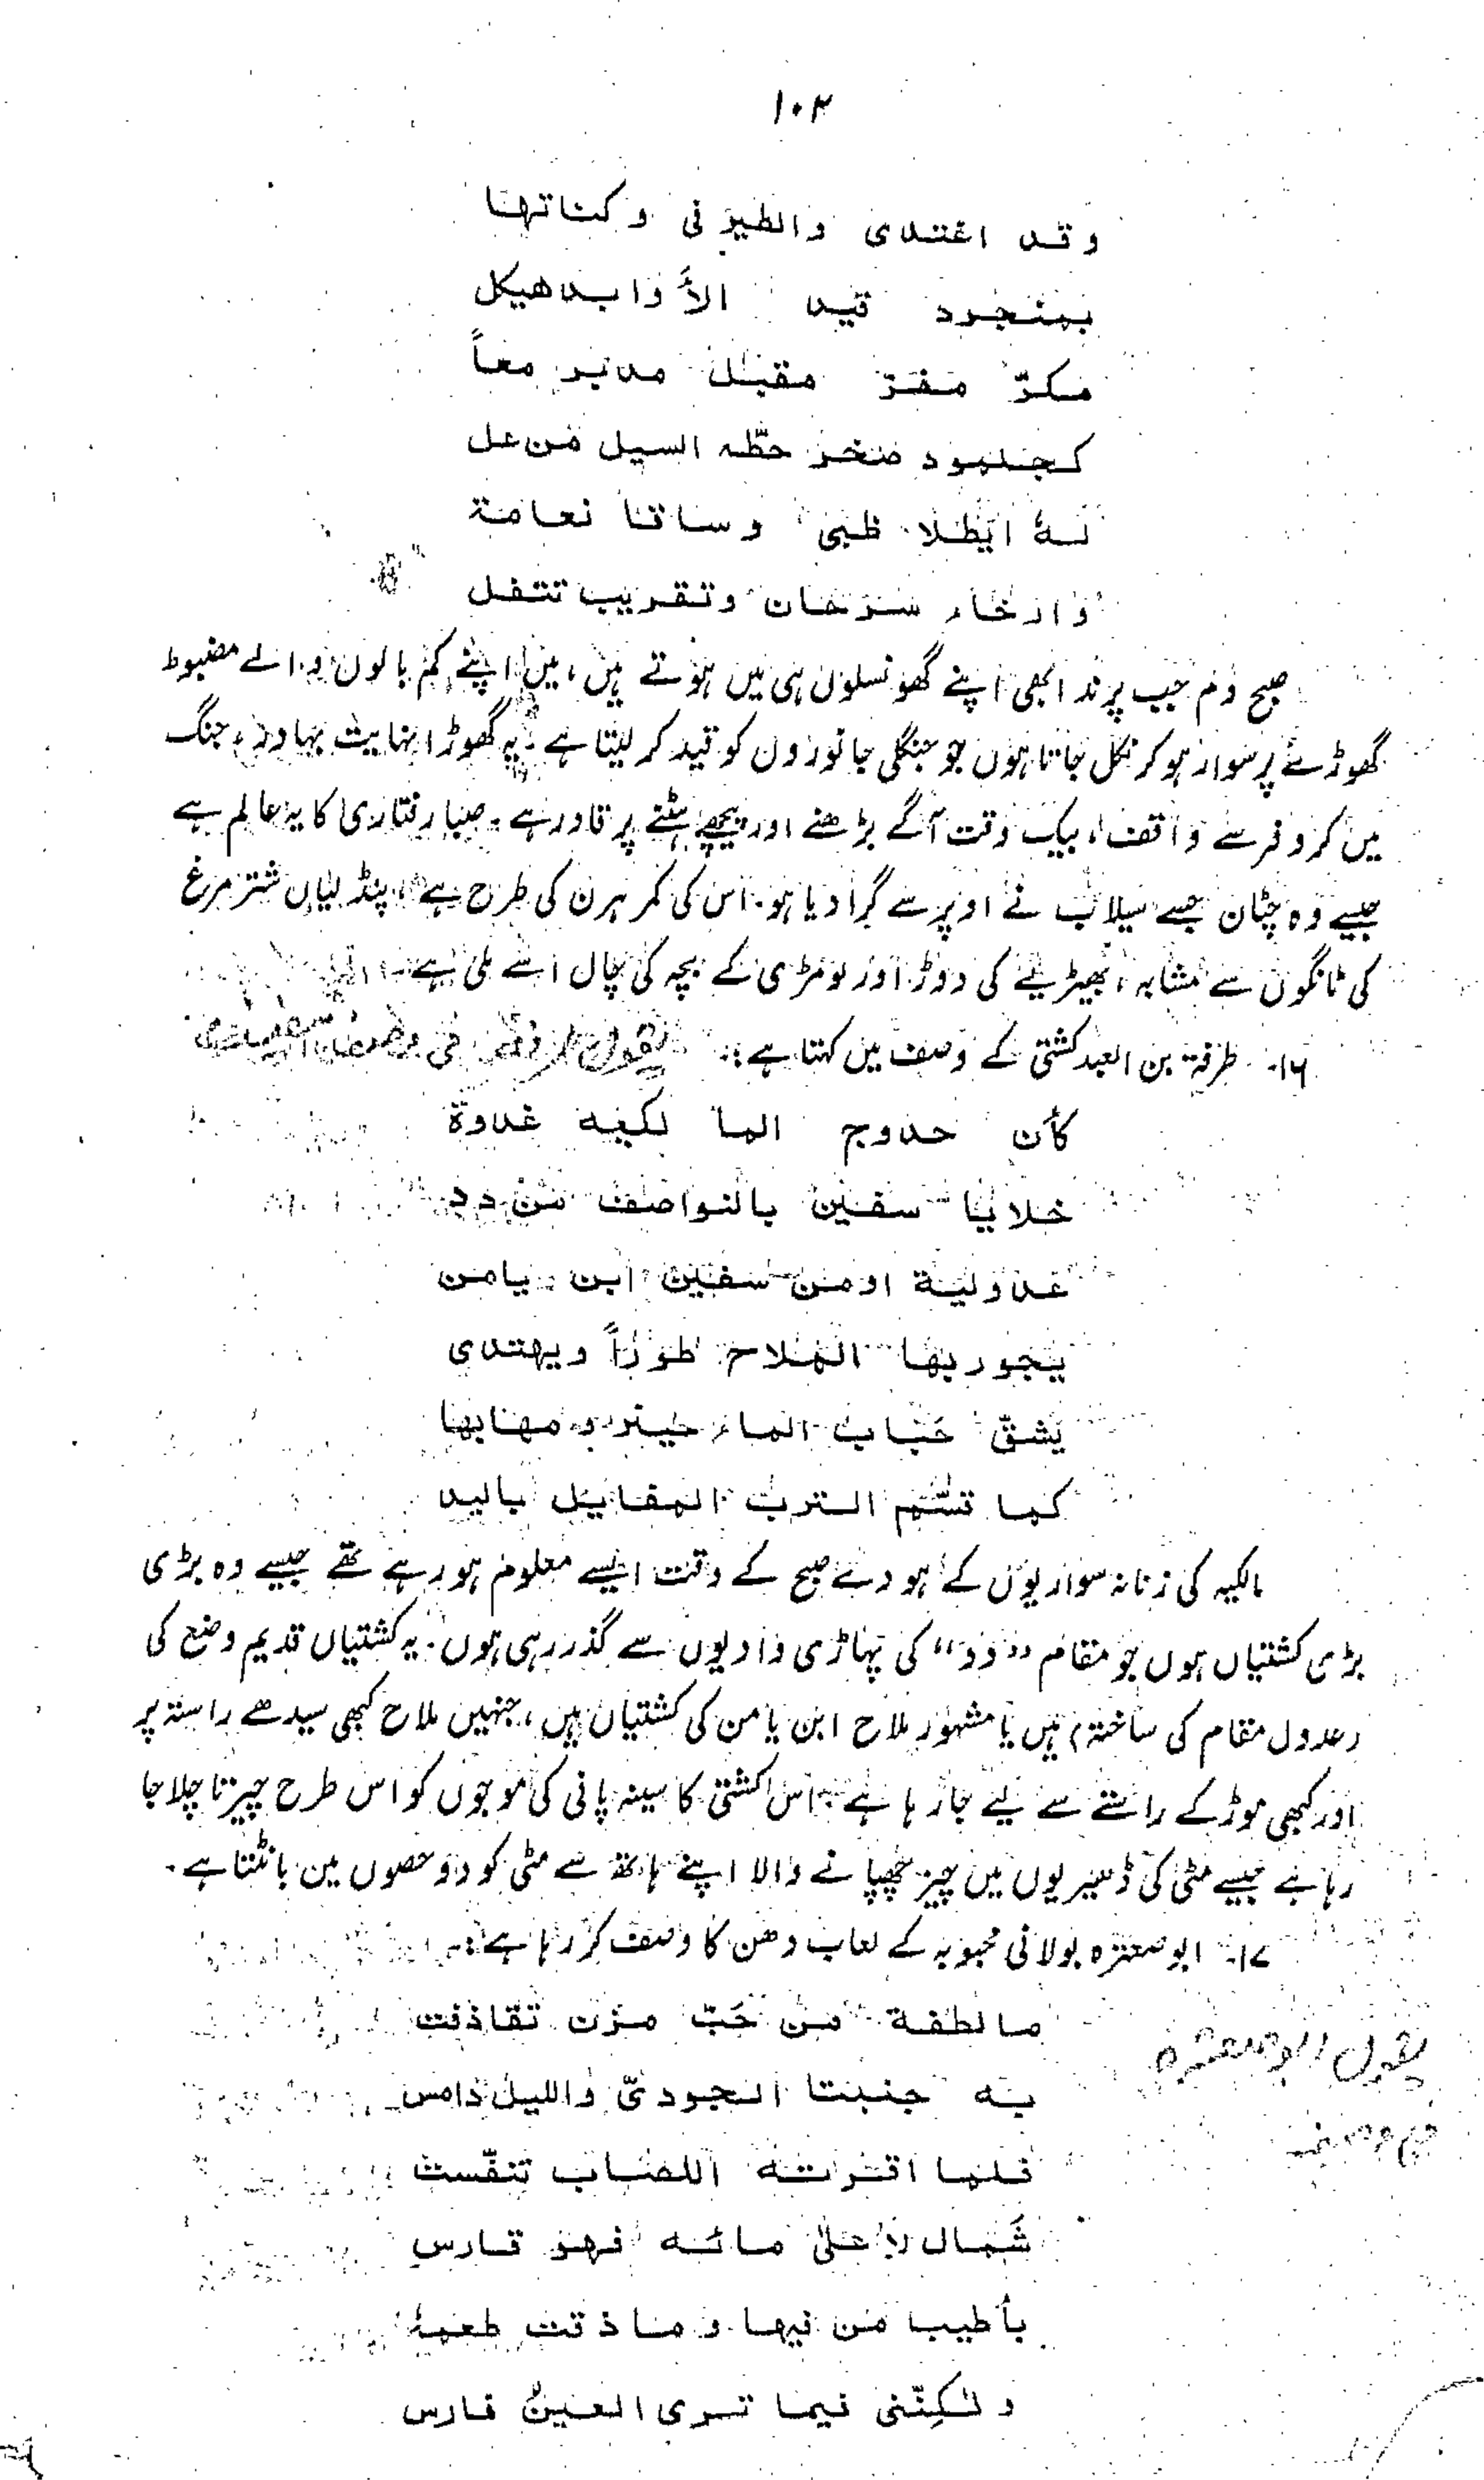 ۱۰۲
وقد اغتدی والطیر فی وکناتھا
بمنجرد قید الأوابد ھیکل
مکرّ مفرّ مقبل مدبر معاً
کجلمود صخر حطّہ السیل من عل
لہٗ ایطلا ظبی وساقا نعامۃ
وارخاء سرحان وتقریب تتفل
صبح دم جب پرند ابھی اپنے گھونسلوں ہی میں ہوتے ہیں، میں اپنے کم بالوں والے مضبوط
گھوڑے پر سوار ہو کر نکل جاتا ہوں جو جنگلی جانوروں کو قید کر لیتا ہے۔ یہ گھوڑا نہایت بہادر، جنگ
میں کروفر سے واقف، بیک وقت آگے بڑھنے اور پیچھے ہٹنے پر قادر ہے۔ صبا رفتاری کا یہ عالم ہے
جیسے وہ چٹان جسے سیلاب نے اوپر سے گرا دیا ہو۔ اس کی کمر ہرن کی طرح ہے، پنڈلیاں شتر مرغ
کی ٹانگوں سے مشابہ، بھیڑیے کی دوڑ اور لومڑی کے بچہ کی چال اسے ملی ہے۔
۱۶۔ طرفۃ بن العبد کشتی کے وصف میں کہتا ہے:۔ یقول طرفۃ فی وصف السفینۃ
کأن حدوج المالکیہ غدوۃ
خلایا سفین بالنواصف من دد
عدولیۃ اومن سفین ابن یامن
یجوربھا الملاح طوراً ویھتدی
یشقّ حباب الماء حیزومھابھا
کما قسّم الترب المفایل بالید
مالکیہ کی زنانہ سواریوں کے ہودے صبح کے وقت ایسے معلوم ہو رہے تھے جیسے وہ بڑی
بڑی کشتیاں ہوں جو مقام ”دَد“ کی پہاڑی وادیوں سے گذر رہی ہوں۔ یہ کشتیاں قدیم وضع کی
(عدول مقام کی ساختہ) ہیں یا مشہور ملاح ابن یامن کی کشتیاں ہیں، جنہیں ملاح کبھی سیدھے راستہ پر
اور کبھی موڑ کے راستے سے لیے جا رہا ہے۔ اس کشتی کا سینہ پانی کی موجوں کو اس طرح چیرتا چلا جا
رہا ہے جیسے مٹی کی ڈھیریوں میں چیز چھپانے والا اپنے ہاتھ سے مٹی کو دو حصوں میں بانٹتا ہے۔
۱۷۔ ابوصعترہ بولانی محبوبہ کے لعاب دھن کا وصف کر رہا ہے:۔
مالطفۃ من حَبّ مزن تقاذفت
بہ جنبتا الجودیّ واللیل دامس
یقول ابوصعترہ
فلما اقرتہ اللصاب تنفّست
شَمال لأعلیٰ مائہ فھو قارس
بأطیب من فیھا وماذقت طعمہٗ
ولٰکِنّنی فیما تری العینُ فارس